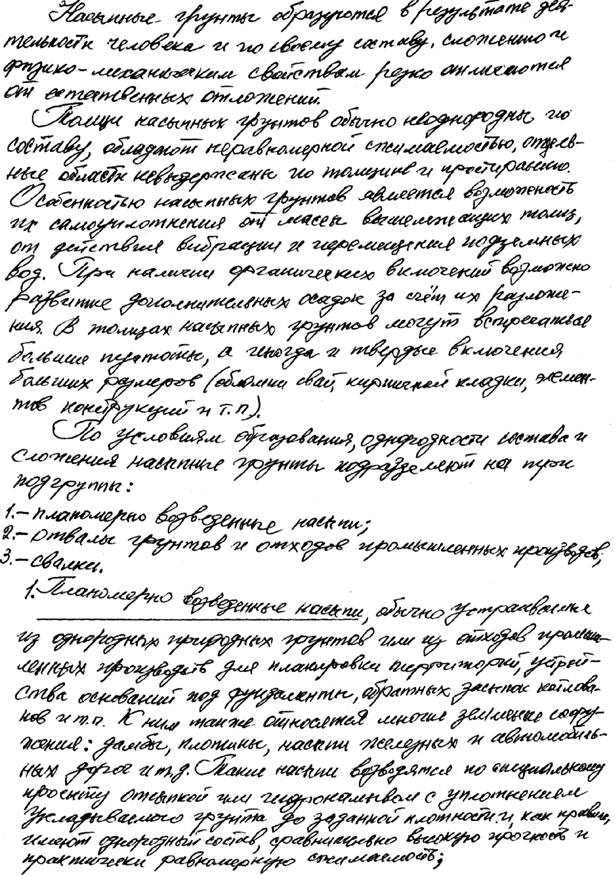 Насыпные грунты образуются в результате дея-
тельности человека и по своему составу, сложению и
физико-механическим свойствам резко отличаются
от естественных отложений.
Толщи насыпных грунтов обычно неоднородны по
составу, обладают неравномерной сжимаемостью, отдель-
ные области невыдержаны по толщине и простиранию.
Особенностью насыпных грунтов является возможность
их самоуплотнения от массы вышележащих толщ,
от действия вибрации и перемещения подземных
вод. При наличии органических включений возможно
развитие дополнительных осадок за счёт их разложе-
ния. В толщах насыпных грунтов могут встречаться
большие пустоты, а иногда и твердые включения
больших размеров (обломки свай, кирпичной кладки, элемен-
тов конструкций и т.п.).
По условиям образования, однородности состава и
сложения насыпные грунты подразделяют на три
подгруппы:
1.- планомерно возведенные насыпи;
2.- отвалы грунтов и отходов промышленных производств;
3.- свалки.
1. Планомерно возведенные насыпи, обычно устраиваемые
из однородных природных грунтов или из отходов промыш-
ленных производств для планировки территорий, устрой-
ства оснований под фундаменты, обратных засыпок котлова-
нов и т.п. К ним также относятся многие земляные соору-
жения: дамбы, плотины, насыпи железных и автомобиль-
ных дорог и т.д. Такие насыпи возводятся по специальному
проекту отсыпкой или гидронамывом с уплотнением
укладываемого грунта до заданной плотности и, как правило,
имеют однородный состав, сравнительно высокую прочность и
практически равномерную сжимаемость;